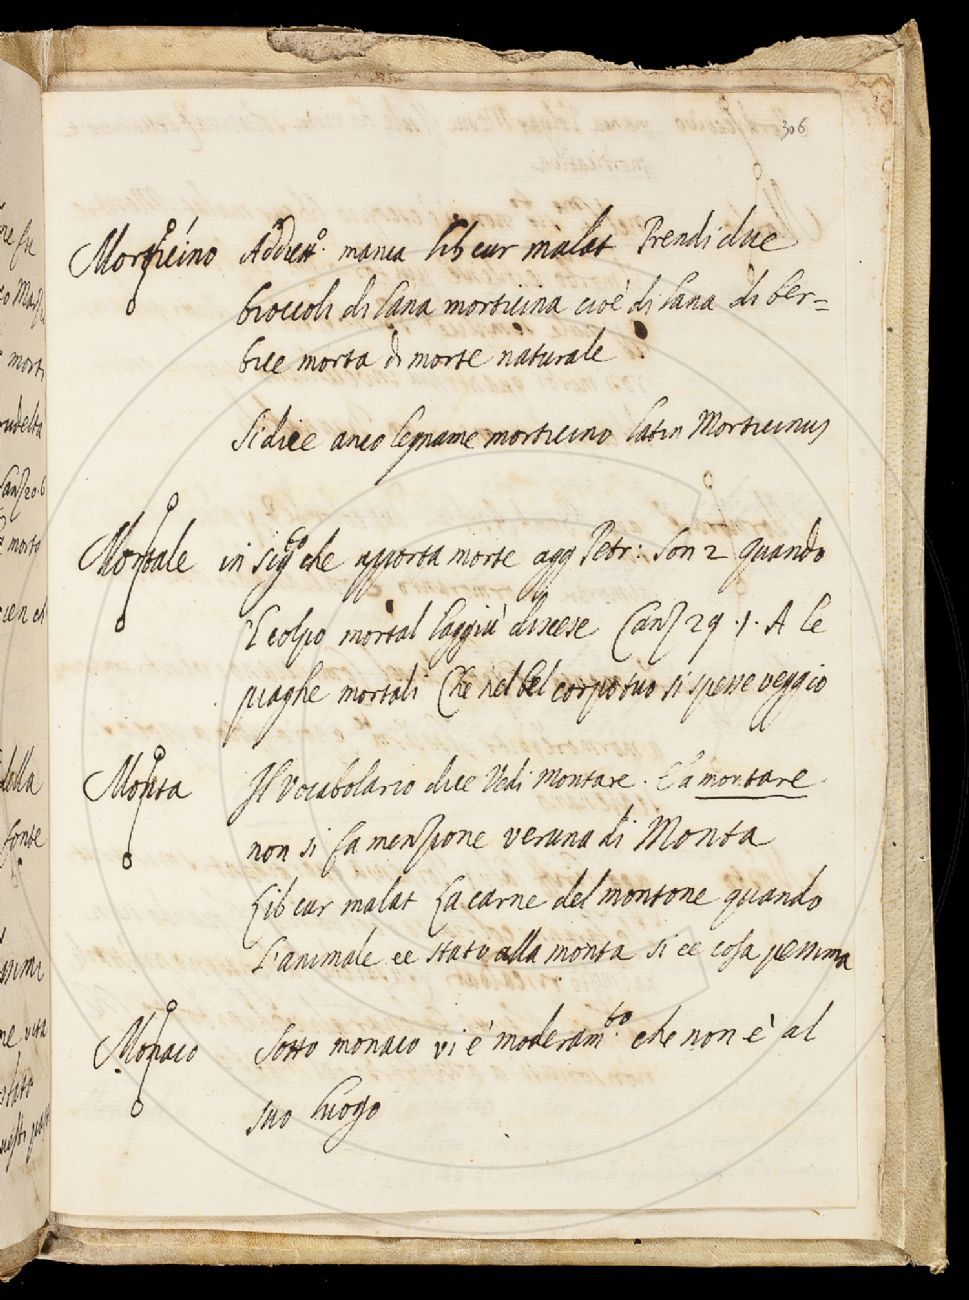 306
Morticino Addiett.o manca Lib cur malat Prendi due
broccoli di lana morticina cioè di lana di ber=
bice morta di morte naturale
Si dice anco legname morticino latin Morticinus
Mortale in sig.to che apporta morte agg Petr: Son 2 quando
Il colpo mortal laggiù discese Canz 29 . 1 . A le
piaghe mortali Che nel bel corpo tuo si spesse veggio
Monta Il Vocabolario dice Vedi Montare . E a montare
non si fa menzione veruna di Monta
Lib cur malat La carne del montone quando
L'animale ee stato alla monta si ee cosa pessima
Monaco Sotto monaco vi è moderam.to che non è al
suo luogo